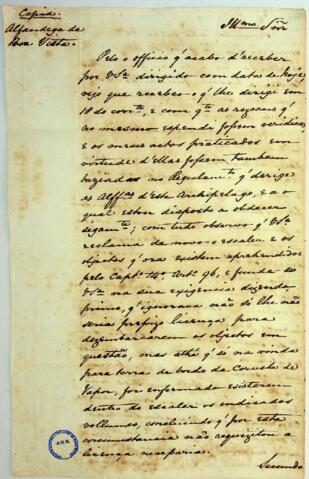 Copia.
Alfandega da
Boa Vista.
Illmo Sñr
Pelo officio q' acabo d'receber
por V Sª dirigido com data de hoje,
vejo que recebeo o q' lhe dirigi em
18 do corrte, e com qto as rasoens q'
no mesmo espendi fossem veridicas,
e os meus actos praticados em
virtude d'ellas fossem tambem
baziados no Regulamto q' derige
as Alffas d'este Archipelago, e a o
qual estou disposto a obdecer
segamte; com tudo observo q' V Sª
reclama de novo o escaler e os
objectos q' ora existem aprehendidos
pelo Capto 14º Artº 96, e funda se
V Sª na sua exigencia dizendo
primo, q' ignorava não só lhe não
seria percizo licença para
dezembarcarem os objectos em
questão, mas athé q' só na vonda
para terra de bordo da Corveta de
Vapor, foi enformado existerem
dentro do escaler os indicados
vollumes, concluindo q' por esta
circumstancia não requizitou a
licença nesseparia.
Secundo
ANN